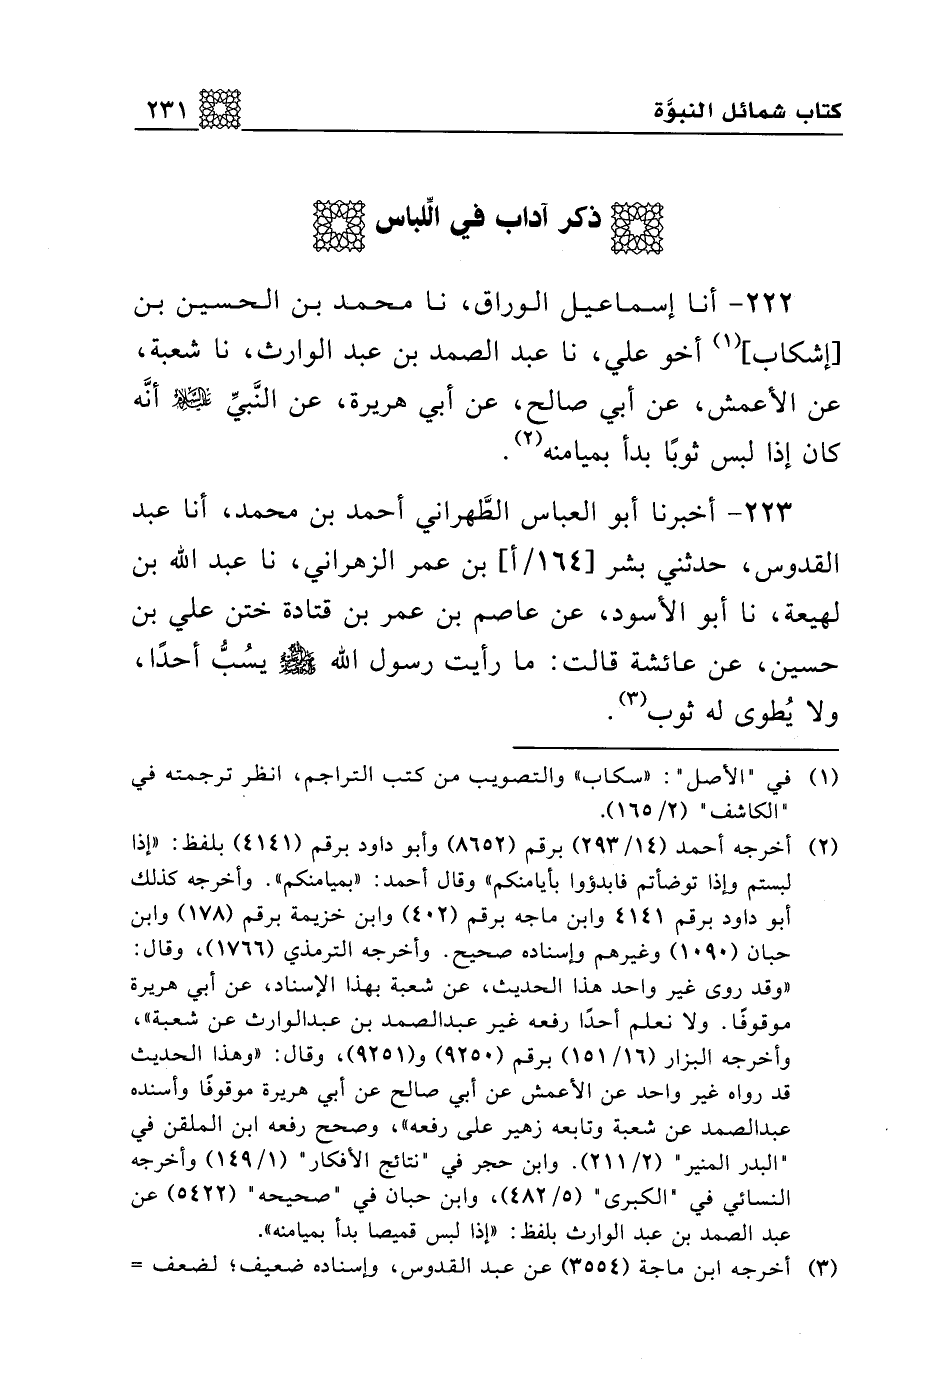 كتاب شمائل النبوَّة ٢٣١
ذكر آداب في اللِّباس
٢٢٢- أنا إسماعيل الوراق، نا محمد بن الحسين بن
[إشكاب](١) أخو علي، نا عبد الصمد بن عبد الوارث، نا شعبة،
عن الأعمش، عن أبي صالح، عن أبي هريرة، عن النَّبيِّ ﷺ أنَّه
كان إذا لبس ثوبًا بدأ بميامنه(٢).
٢٢٣- أخبرنا أبو العباس الطَّهراني أحمد بن محمد، أنا عبد
القدوس، حدثني بشر [١٦٤/أ] بن عمر الزهراني، نا عبد الله بن
لهيعة، نا أبو الأسود، عن عاصم بن عمر بن قتادة ختن علي بن
حسين، عن عائشة قالت: ما رأيت رسول الله ﷺ يسُبُّ أحدًا،
ولا يُطوى له ثوب(٣).
(١) في "الأصل": «سكاب» والتصويب من كتب التراجم، انظر ترجمته في
"الكاشف" (٢/١٦٥).
(٢) أخرجه أحمد (١٤/٢٩٣) برقم (٨٦٥٢) وأبو داود برقم (٤١٤١) بلفظ: «إذا
لبستم وإذا توضأتم فابدؤوا بأيامنكم» وقال أحمد: «بميامنكم». وأخرجه كذلك
أبو داود برقم ٤١٤١ وابن ماجه برقم (٤٠٢) وابن خزيمة برقم (١٧٨) وابن
حبان (١٠٩٠) وغيرهم وإسناده صحيح. وأخرجه الترمذي (١٧٦٦)، وقال:
«وقد روى غير واحد هذا الحديث، عن شعبة بهذا الإسناد، عن أبي هريرة
موقوفًا. ولا نعلم أحدًا رفعه غير عبدالصمد بن عبدالوارث عن شعبة»،
وأخرجه البزار (١٦/١٥١) برقم (٩٢٥٠) و(٩٢٥١)، وقال: «وهذا الحديث
قد رواه غير واحد عن الأعمش عن أبي صالح عن أبي هريرة موقوفًا وأسنده
عبدالصمد عن شعبة وتابعه زهير على رفعه»، وصحح رفعه ابن الملقن في
"البدر المنير" (٢/٢١١). وابن حجر في "نتائج الأفكار" (١/١٤٩) وأخرجه
النسائي في "الكبرى" (٥/٤٨٢)، وابن حبان في "صحيحه" (٥٤٢٢) عن
عبد الصمد بن عبد الوارث بلفظ: «إذا لبس قميصا بدأ بميامنه».
(٣) أخرجه ابن ماجة (٣٥٥٤) عن عبد القدوس، وإسناده ضعيف؛ لضعف =